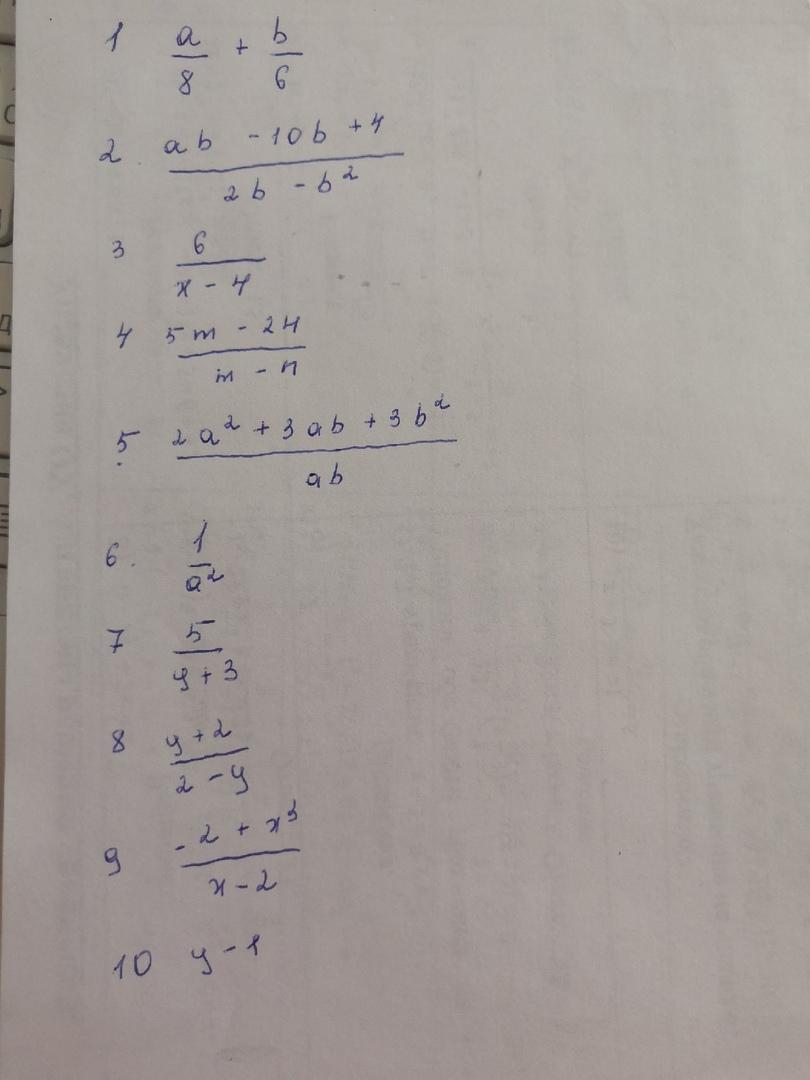 1 a/8 + b/6
2. (ab - 10b + 4)/(2b - b²)
3 6/(x - 4)
4 (5m - 24)/(m - n)
5. (2a² + 3ab + 3b²)/(ab)
6. 1/a²
7 5/(y + 3)
8 (y + 2)/(2 - y)
9 (-2 + x³)/(x - 2)
10 y - 1